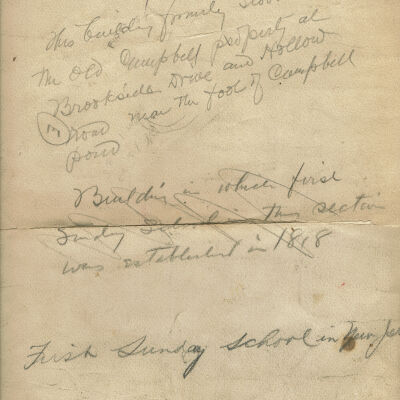 This building formerly stood
the old Campbell property at
Brookside Drive and Hollow
Road near the foot of Campbell
pond
Building in which first
Sunday School in this section
was established in 1818
First Sunday School in New Jer